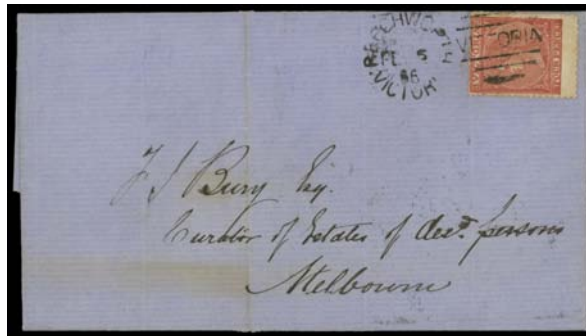 BEECHWORTH
FE 5
66
VICTORIA
VICTORIA
F J Bury Esq.
Curator of Estates of decd. persons
Melbourne